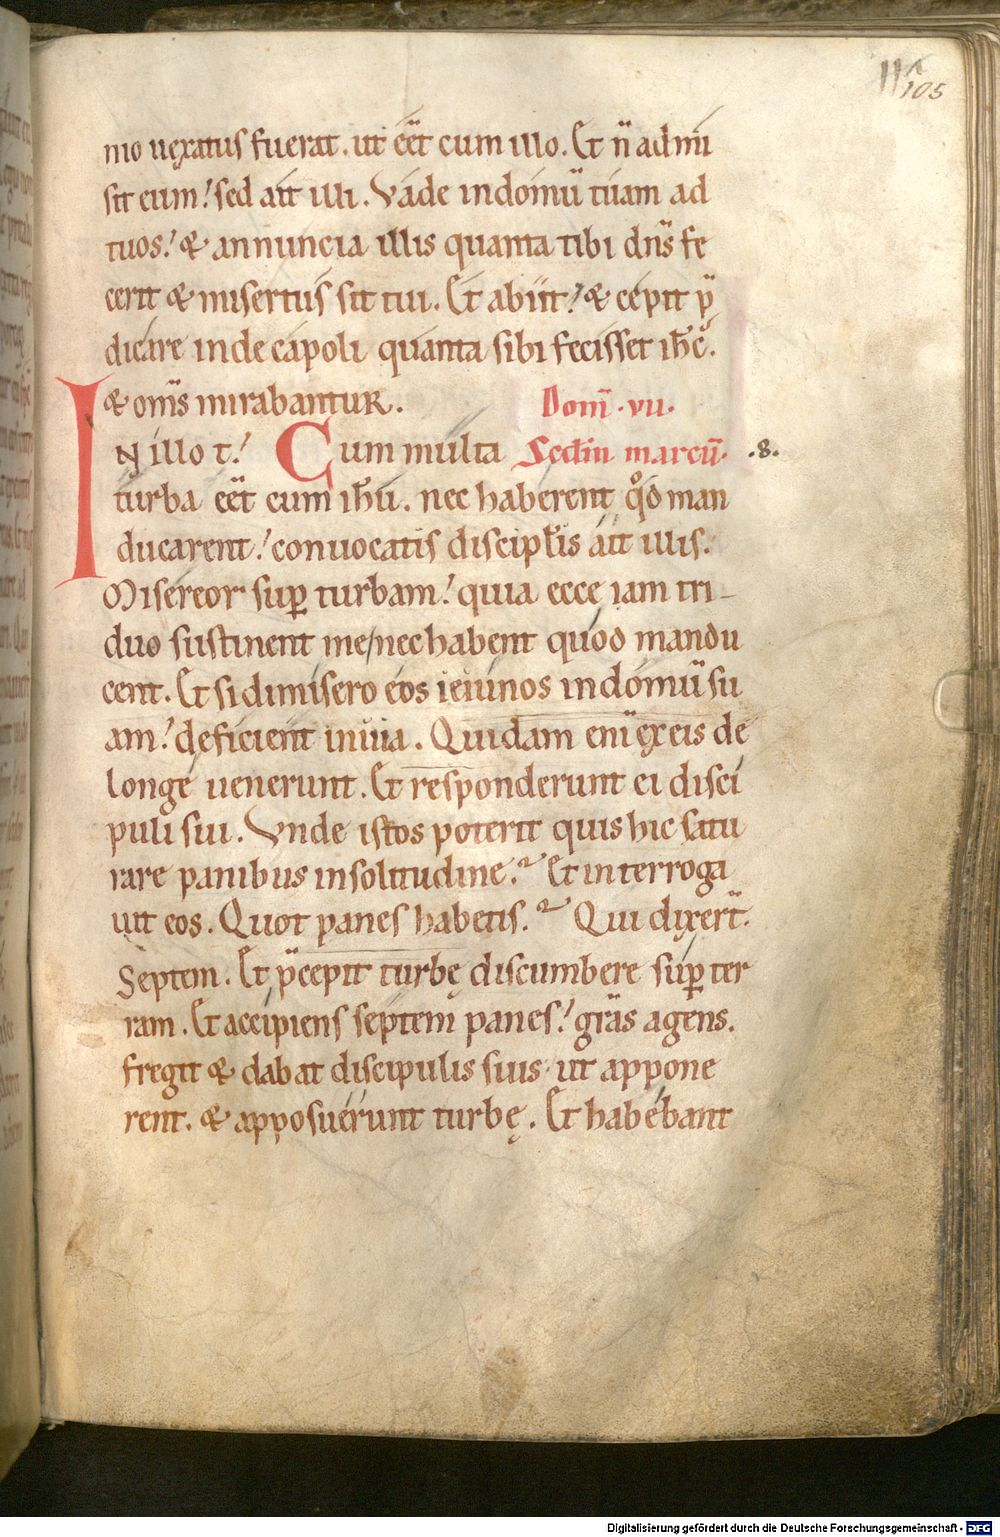 105
mo uexatus fuerat. ut eēt cum illo. Et n̄ admi
sit eum! sed ait illi. Vade in domū tuam ad
tuos! & annuncia illis quanta tibi dn̄s fe
cerit & misertus sit tui. Et abiit! & cepit p̄
dicare in decapoli quanta sibi fecisset ih̄c.
& om̄s mirabantur.
Dom̄ .vii.
IN illo t! Cum multa
Scd̄m marcū. .8.
turba eēt cum ih̄u. nec haberent qͦd man
ducarent! conuocatis discipl̄is ait illis.
Misereor suꝑ turbam! quia ecce iam tri-
duo sustinent me/nec habent quod mandu
cent. Et si dimisero eos ieiunos in domū su
am! deficient in uia. Quidam eni̅ ex eis de
longe uenerunt. Et responderunt ei disci
puli sui. Vnde istos poterit quis hic satu
rare panibus in solitudine? Et interroga
uit eos. Quot panes habetis? Qui dixer̄t.
Septem. Et p̄cepit turbę discumbere suꝑ ter
ram. Et accipiens septem panes! gr̄as agens.
fregit & dabat discipulis suis. ut appone
rent. & apposuerunt turbę. Et habebant
Digitalisierung gefördert durch die Deutsche Forschungsgemeinschaft - DFG